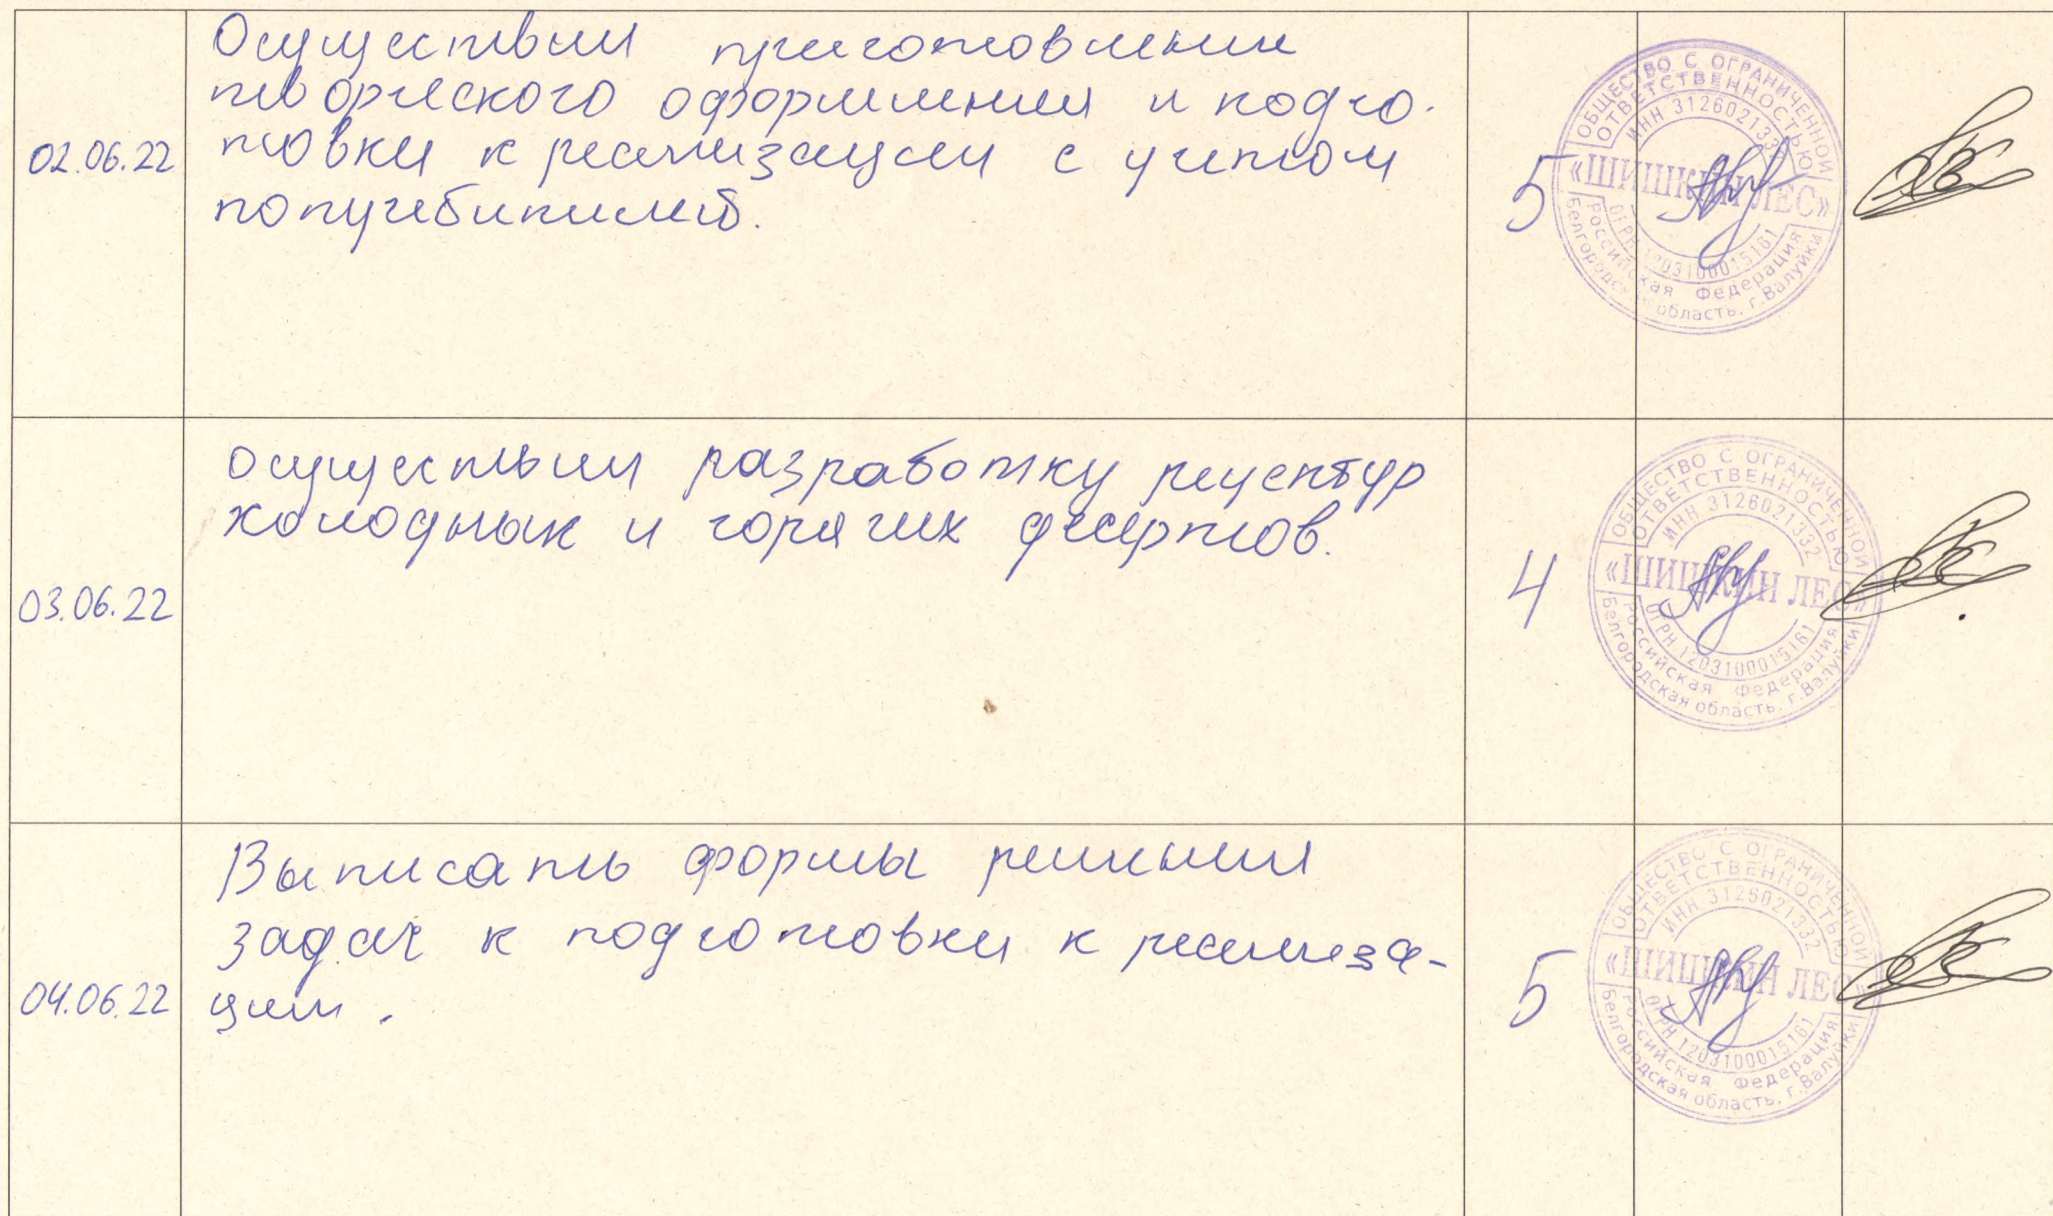 Осуществил приготовления
творческого оформления и подго-
02.06.22
товки к реализации с учетом
5
ОБЩЕСТВО С ОГРАНИЧЕННОЙ
ОТВЕТСТВЕННОСТЬЮ
ИНН 3126021332
«ШИШКИН ЛЕС»
ОГРН 1203100015161
Российская Федерация
Белгородская область, г.Валуйки
Осуществил разработку рецептур
холодных и горячих десертов.
03.06.22
4
ОБЩЕСТВО С ОГРАНИЧЕННОЙ
ОТВЕТСТВЕННОСТЬЮ
ИНН 3126021332
«ШИШКИН ЛЕС»
ОГРН 1203100015161
Российская Федерация
Белгородская область, г.Валуйки
Выписать формы решения
задач к подготовки к реализа-
04.06.22
ции.
5
ОБЩЕСТВО С ОГРАНИЧЕННОЙ
ОТВЕТСТВЕННОСТЬЮ
ИНН 3126021332
«ШИШКИН ЛЕС»
ОГРН 1203100015161
Российская Федерация
Белгородская область, г.Валуйки